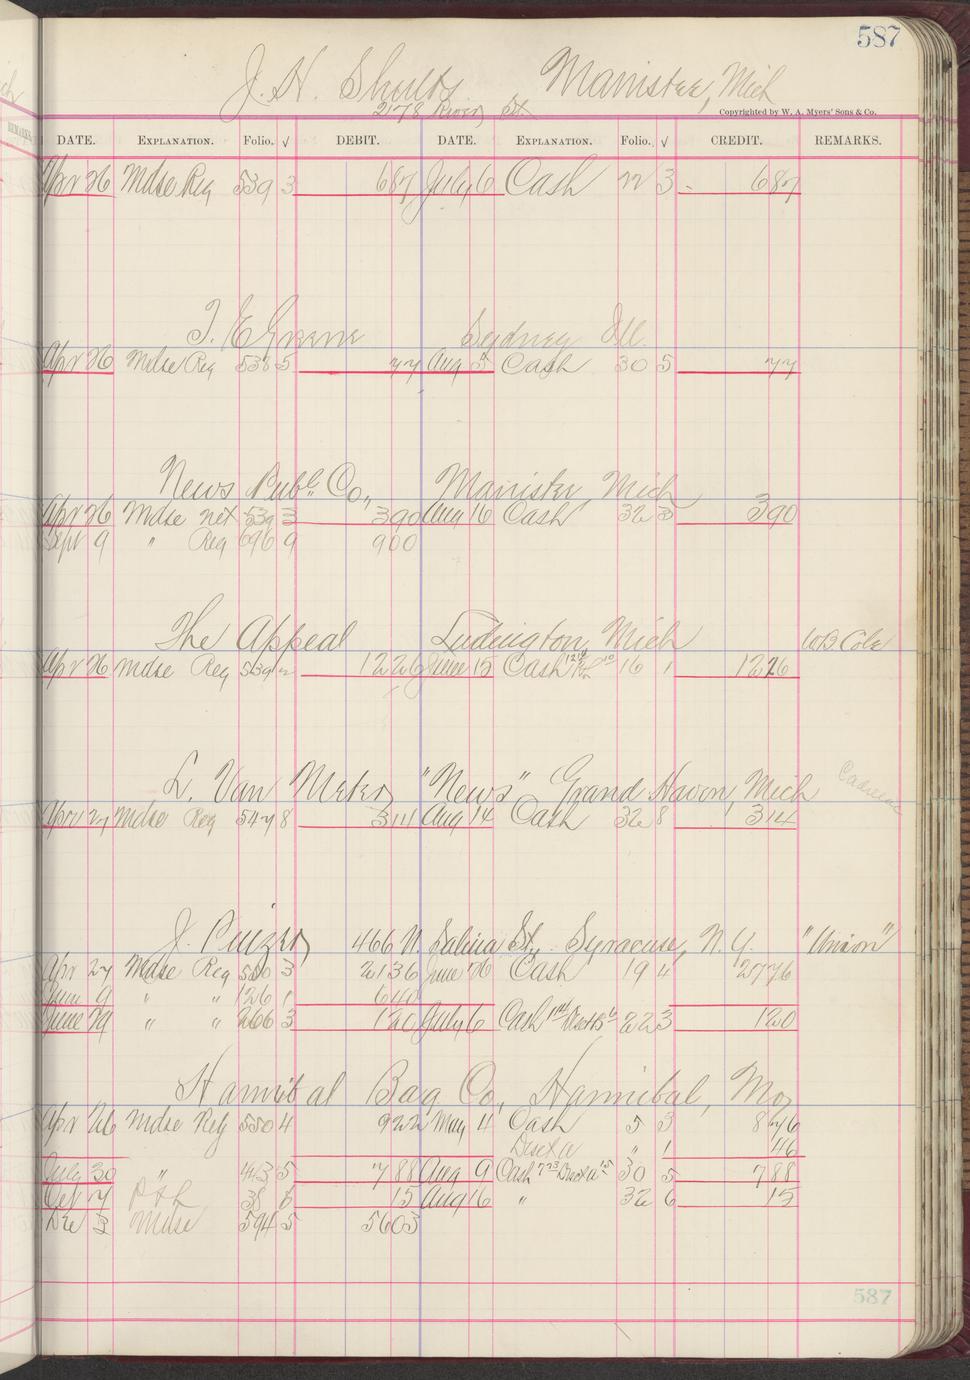 587
J. H. Shults Manistee, Mich
278 River St
Copyrighted by W. A. Myers' Sons & Co.
DATE. EXPLANATION. Folio. √ DEBIT. DATE. EXPLANATION. Folio. √ CREDIT. REMARKS.
Apr 26 Mdse Reg 539 3 687 July 6 Cash 22 3 687
T. E Greene Sydney Ill.
Apr 26 Mdse Reg 538 5 77 Aug 5 Cash 30 5 77
News Publ. Co., Manistee, Mich
Apr 26 Mdse net 539 3 390 Aug 16 Cash 32 3 390
Sept 9 " Reg 696 9 900
The Appeal Ludington, Mich W.B. Cole
Apr 26 Mdse Reg 539 2 1226 June 15 Cash 16 1 1226
L. Van Meter "News" Grand Haven, Mich Cadillac
Apr 27 Mdse Reg 547 8 314 Aug 14 Cash 32 8 314
J. 466 N. Salina St., Syracuse, N.Y. "Union"
Apr 27 Mdse Reg 550 3 2136 June 26 Cash 19 4 2776
June 9 " " 126 1 640
June 29 " " 266 3 120 July 6 Cash 22 3 120
Hannibal Bag Co, Hannibal, Mo,
Apr 26 Mdse Reg 550 4 922 May 4 Cash 5 3 876
" 1 46
July 30 " 413 5 788 Aug 9 Cash 30 5 788
Oct 7 38 6 15 Aug 16 " 32 6 15
Dec 3 Mdse 594 5 5603
587